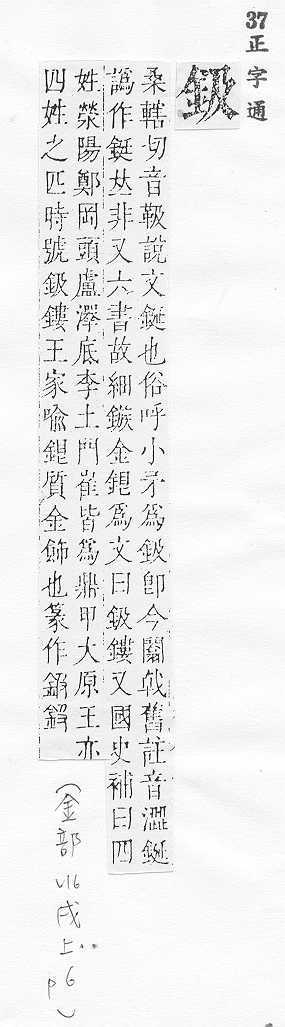 37正字通
鈒
桑轄切音靸說文鋋也俗呼小矛為鈒卽今闟戟舊註音澀鋋
譌作鋌𠀤非又六書故細鏃金鋜為文曰鈒鏤又國史補曰四
姓滎陽鄭岡頭盧澤底李土門崔皆為鼎甲大原王亦
四姓之匹時號鈒鏤王家喩鋜質金飾也篆作
(金部
戌
上
p6)